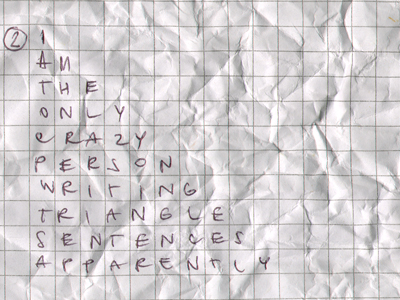 2 I
AM
THE
ONLY
CRAZY
PERSON
WRITING
TRIANGLE
SENTENCES
APPARENTLY